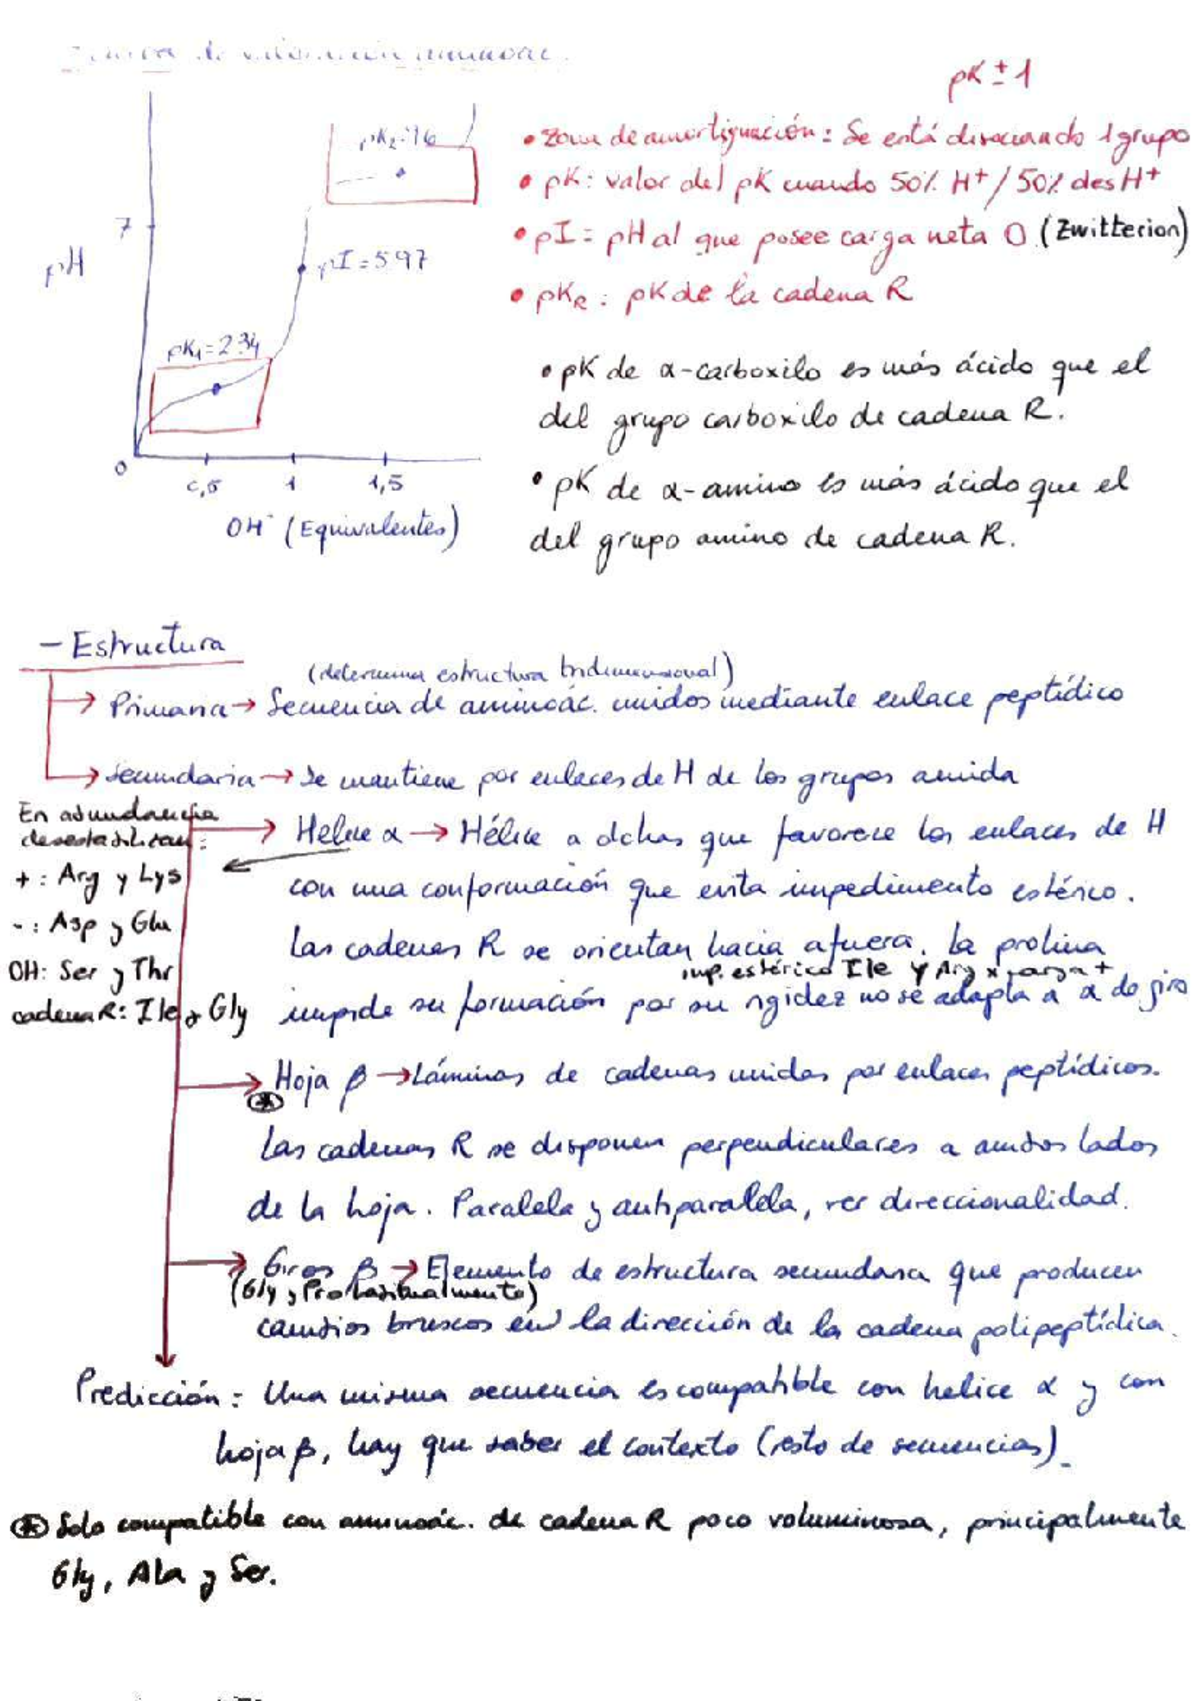 Curva de valoración aminoác.
pK ± 1
pK₂=9'6
7
pH
pI = 5'97
pK₁=2'34
0
0,5 1 1,5
OH⁻ (Equivalentes)
• Zona de amortiguación: Se está disociando 1 grupo
• pK: valor del pK cuando 50% H⁺/50% desH⁺
• pI = pH al que posee carga neta 0 (Zwitterion)
• pKR : pK de la cadena R
• pK de α-carboxilo es más ácido que el
del grupo carboxilo de cadena R.
• pK de α-amino es más ácido que el
del grupo amino de cadena R.
- Estructura
(determina estructura tridimensional)
Primaria → Secuencia de aminoác. unidos mediante enlace peptídico
Secundaria → Se mantiene por enlaces de H de los grupos amida
En abundancia
desestabilizan:
+ : Arg y Lys
- : Asp y Glu
OH: Ser y Thr
cadena R: Ile y Gly
Helice α → Hélice a dchas que favorece los enlaces de H
con una conformación que evita impedimento estérico.
Las cadenas R se orientan hacia afuera. La prolina
imp. estérico Ile y Arg x carga +
impide su formación por su rigidez no se adapta a α de giro
Hoja β → Láminas de cadenas unidas por enlaces peptídicos.
*
Las cadenas R se disponen perpendiculares a ambos lados
de la hoja. Paralela y antiparalela, ver direccionalidad.
Giros β → Elemento de estructura secundaria que producen
(Gly y Pro habitualmente)
cambios bruscos en la dirección de la cadena polipeptídica.
Predicción: Una misma secuencia es compatible con helice α y con
hoja β, hay que saber el contexto (resto de secuencias).
* Solo compatible con aminoác. de cadena R poco voluminosa, principalmente
Gly, Ala y Ser.